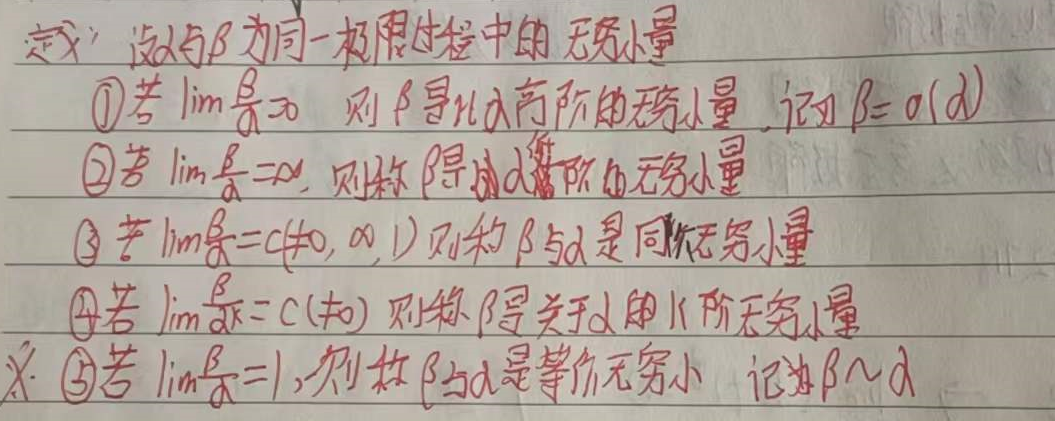 定义: 设α与β为同一极限过程中的无穷小量
①若 lim β/α=0 则β是比α高阶的无穷小量,记为 β=o(α)
②若 lim β/α=∞, 则称β是比α低阶的无穷小量
③若 lim β/α=c(≠0,∞,1) 则称β与α是同阶无穷小量
④若 lim β/αᵏ=c(≠0) 则称β是关于α的k阶无穷小量
※ ⑤若 lim β/α=1,则称β与α是等价无穷小 记为β~α